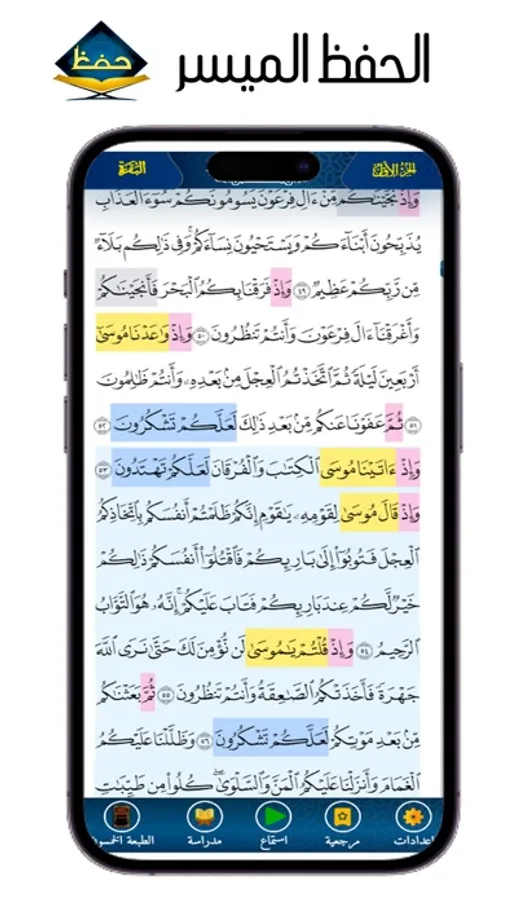 حفظ
الحفظ الميسر
الجزء الأول
البقرة
وَإِذْ نَجَّيْنَاكُم مِّنْ ءَالِ فِرْعَوْنَ يَسُومُونَكُمْ سُوٓءَ الْعَذَابِ
يُذَبِّحُونَ أَبْنَآءَكُمْ وَيَسْتَحْيُونَ نِسَآءَكُمْ ۚ وَفِى ذَٰلِكُم بَلَآءٌ
مِّن رَّبِّكُمْ عَظِيمٌ ٤٩ وَإِذْ فَرَقْنَا بِكُمُ الْبَحْرَ فَأَنجَيْنَاكُمْ
وَأَغْرَقْنَآ ءَالَ فِرْعَوْنَ وَأَنتُمْ تَنظُرُونَ ٥٠ وَإِذْ وَاعَدْنَا مُوسَىٰٓ
أَرْبَعِينَ لَيْلَةً ثُمَّ اتَّخَذْتُمُ الْعِجْلَ مِنۢ بَعْدِهِۦ وَأَنتُمْ ظَالِمُونَ
٥١ ثُمَّ عَفَوْنَا عَنكُم مِّنۢ بَعْدِ ذَٰلِكَ لَعَلَّكُمْ تَشْكُرُونَ ٥٢
وَإِذْ ءَاتَيْنَا مُوسَى الْكِتَابَ وَالْفُرْقَانَ لَعَلَّكُمْ تَهْتَدُونَ ٥٣
وَإِذْ قَالَ مُوسَىٰ لِقَوْمِهِۦ يَاقَوْمِ إِنَّكُمْ ظَلَمْتُمْ أَنفُسَكُم بِاتِّخَاذِكُمُ
الْعِجْلَ فَتُوبُوٓا۟ إِلَىٰ بَارِئِكُمْ فَاقْتُلُوٓا۟ أَنفُسَكُمْ ذَٰلِكُمْ
خَيْرٌ لَّكُمْ عِندَ بَارِئِكُمْ فَتَابَ عَلَيْكُمْ ۚ إِنَّهُۥ هُوَ التَّوَّابُ
الرَّحِيمُ ٥٤ وَإِذْ قُلْتُمْ يَامُوسَىٰ لَن نُّؤْمِنَ لَكَ حَتَّىٰ نَرَى اللَّهَ
جَهْرَةً فَأَخَذَتْكُمُ الصَّاعِقَةُ وَأَنتُمْ تَنظُرُونَ ٥٥ ثُمَّ بَعَثْنَاكُم
مِّنۢ بَعْدِ مَوْتِكُمْ لَعَلَّكُمْ تَشْكُرُونَ ٥٦ وَظَلَّلْنَا عَلَيْكُمُ
الْغَمَامَ وَأَنزَلْنَا عَلَيْكُمُ الْمَنَّ وَالسَّلْوَىٰ ۖ كُلُوا۟ مِن طَيِّبَاتِ
إعدادات
مرجعية
استماع
مدراسة
الطبعة